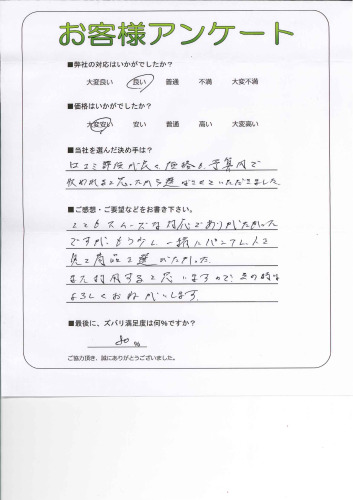 お客様アンケート
■弊社の対応はいかがでしたか？
大変良い 良い 普通 不満 大変不満
■価格はいかがでしたか？
大変安い 安い 普通 高い 大変高い
■当社を選んだ決め手は？
口コミ評価が良く価格も予算内で
収められると思ったから選ばさせていただきました。
■ご感想・ご要望などをお書き下さい。
とてもスムーズな対応でありがたかった
ですが、もう少し一緒にパンフレット
見て商品を選びたかった。
また利用すると思いますので、その時は
よろしくおねがいします。
■最後に、ズバリ満足度は何％ですか？
80 %
ご協力頂き、誠にありがとうございました。